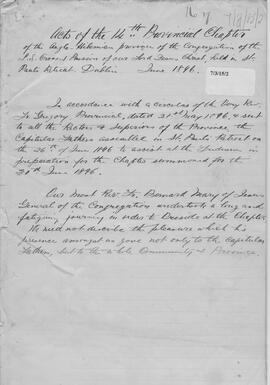 7/3/18/2
Acts of the 14th Provincial Chapter
of the Anglo-Hibernian province of the Congregation of the
S.S. Cross & Passion of our Lord Jesus Christ, held in St.
Pauls Retreat. Dublin June 1896.
7/3/18/2
In accordance with a circular of the Very Rev.
Fr Gregory Provincial, dated 21st May 1896, & sent
to all the Rectors & Superiors of the Province, the
Capitular Fathers assembled in St. Pauls Retreat on
the 26th of June 1896 to assist at the Triduum in
preparation for the Chapter summoned for the
30th June 1896.
Our Most Rev. Fr. Bernard Mary of Jesus
General of the Congregation undertook a long and
fatiguing journey in order to Preside at the Chapter
We need not describe the pleasure which his
presence amongst us gave not only to the Capitular
Fathers, but to the whole Community & Province.